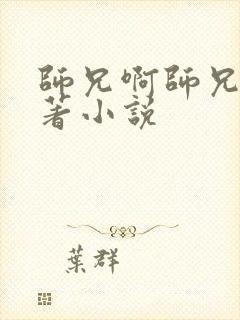 師兄啊師兄
著小説
葉群